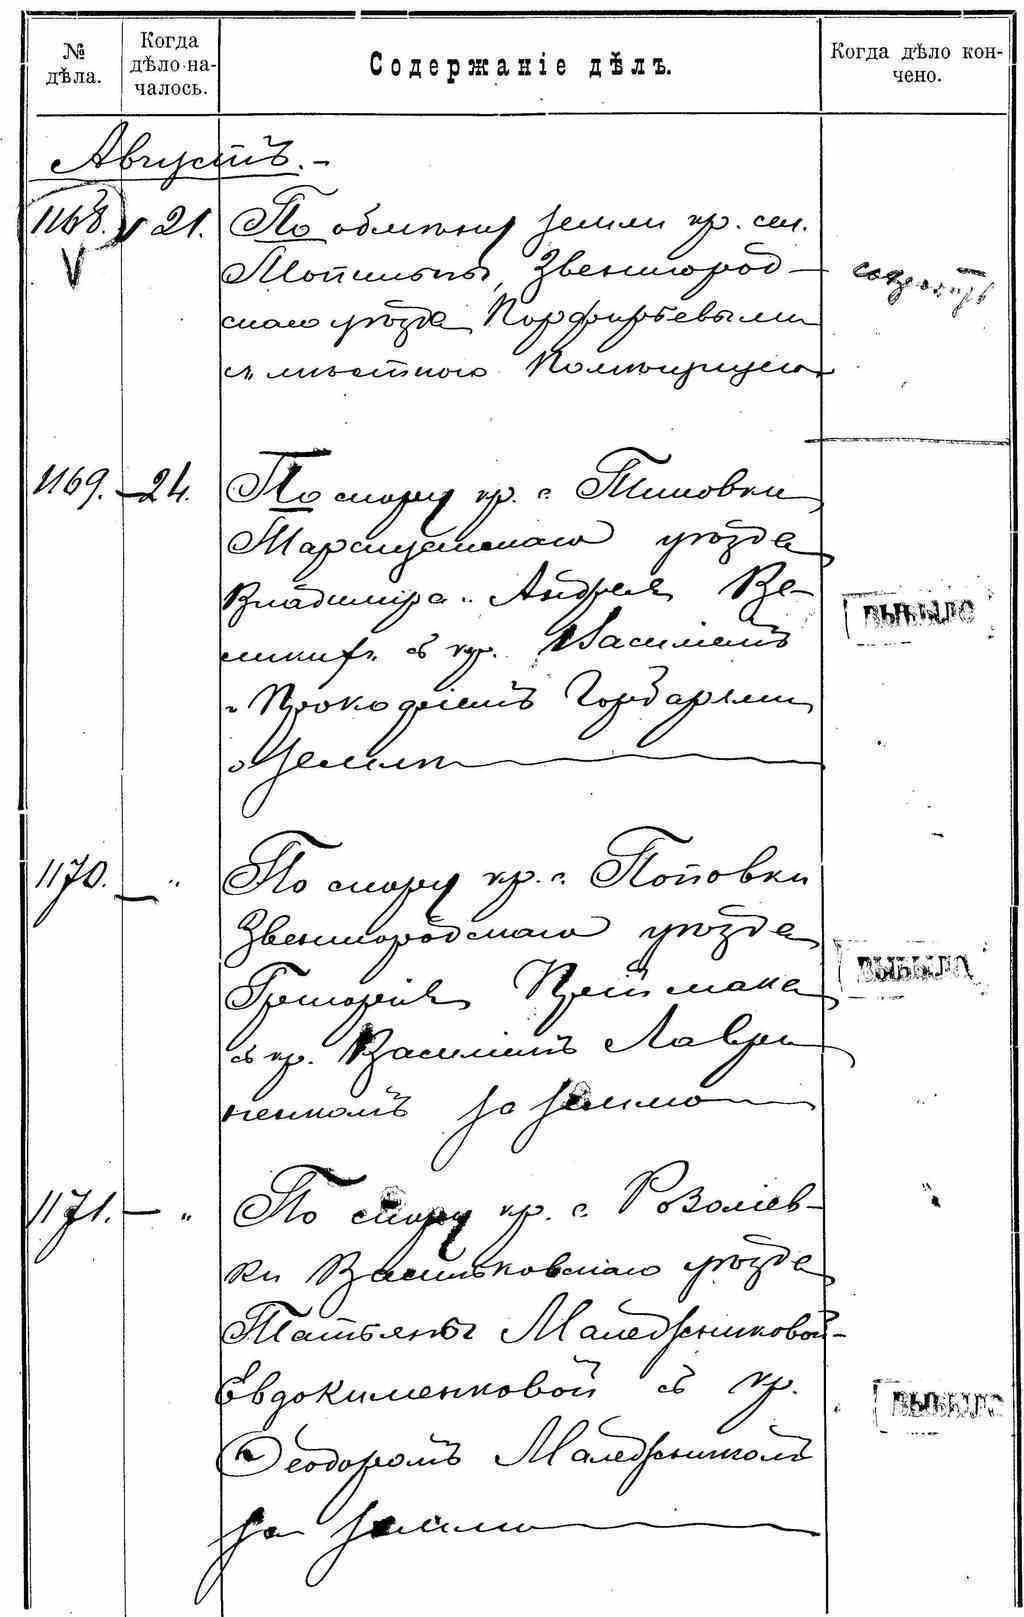 № дѣла.
Когда дѣло на-
чалось.
Содержаніе дѣлъ.
Когда дѣло кон-
чено.
Августъ. -
1168. 21. По обмѣну земли кр. сел.
Звенигород-
скаго уѣзда Порфирьевыми
съ мѣстною
1169. - 24. По спору кр. с. Тиновки
Таращанскаго уѣзда
Владиміра и Андрея Ве-
ликихъ съ кр. Василіемъ
и Прокофіемъ Гончарями
о землѣ
выбыло
1170. - " По спору кр. с. Поповки
Звенигородскаго уѣзда
Григорія Приймака
съ кр. Василіемъ Лаври-
ненкомъ за землю
выбыло
1171. - " По спору кр. с. Розаліев-
ки Васильковскаго уѣзда
Татьяны
Евдокименковой съ кр.
Ѳеодоромъ
за землю
выбыло